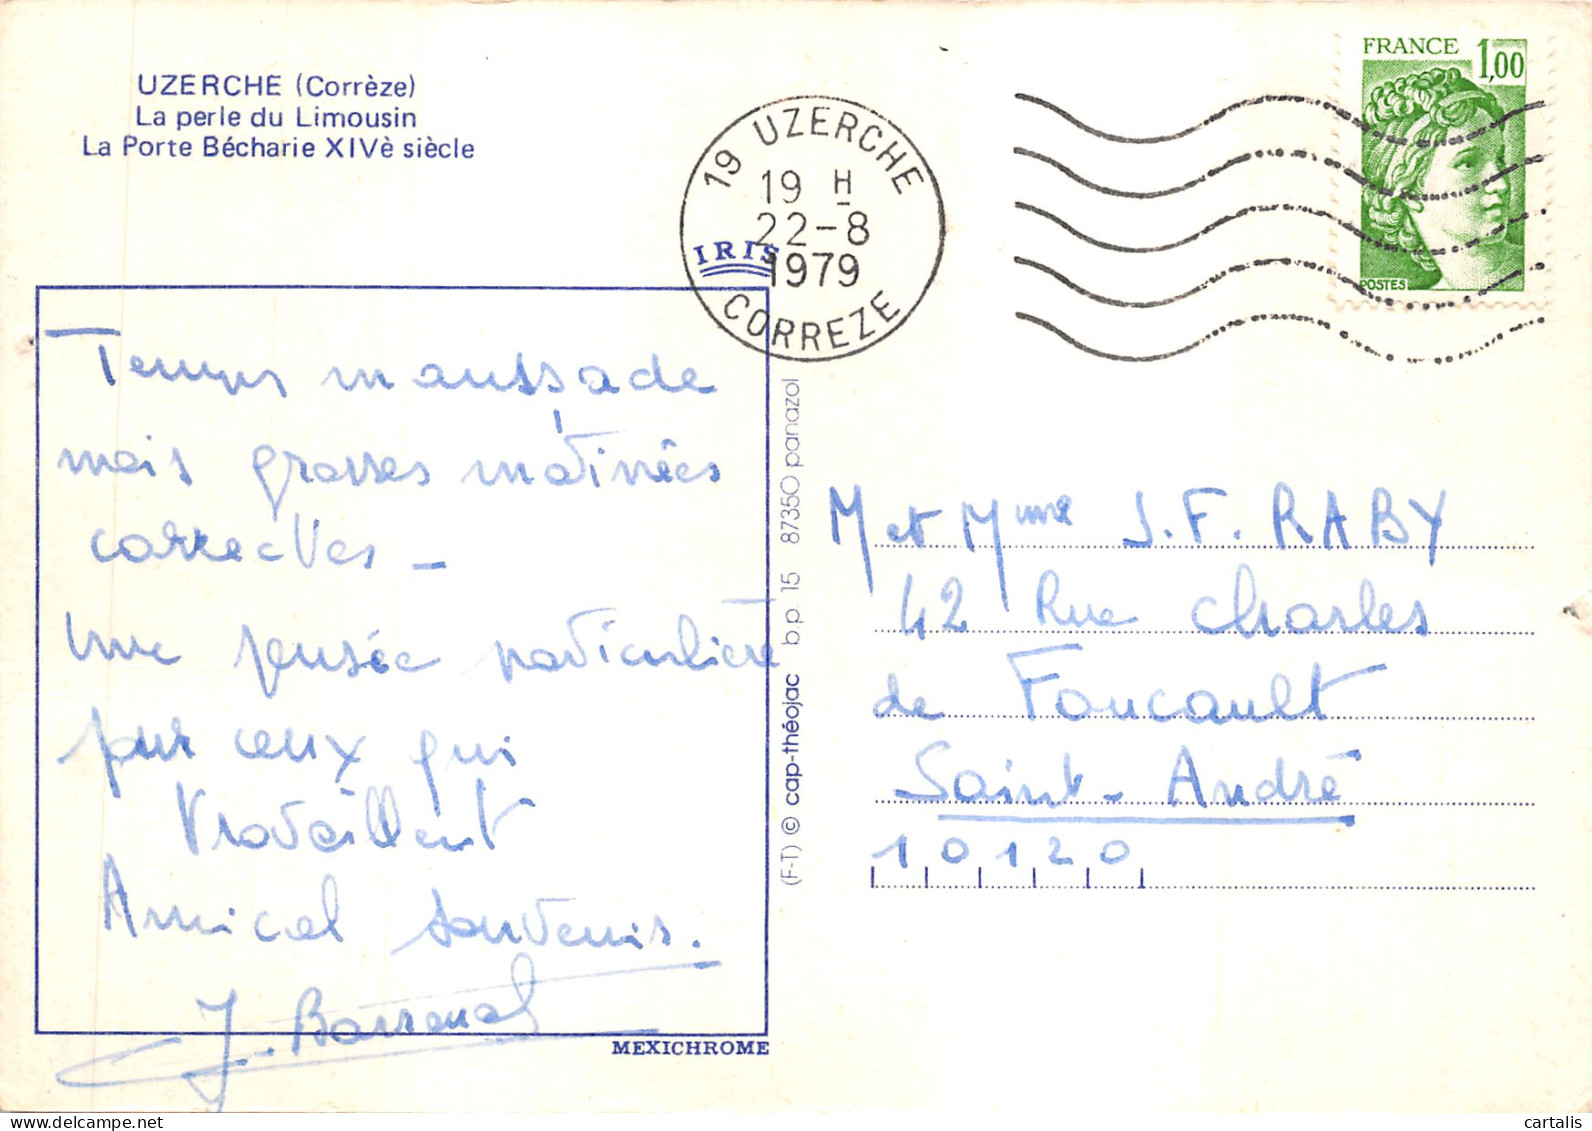 UZERCHE (Corrèze)
La perle du Limousin
La Porte Bécharie XIVè siècle
19 UZERCHE
19 H
22-8
1979
CORREZE
IRIS
FRANCE 1,00
POSTES
Temps maussade
mais grasses matinées
correctes -
Une pensée particulière
pour ceux qui
travaillent
Amical souvenir.
J. Barrenal
MEXICHROME
(F-T) © cap-théojac b.p. 15 87350 panazol
M et Mme J.F. RABY
42 Rue Charles
de Foucault
Saint-André
10120
cartalis